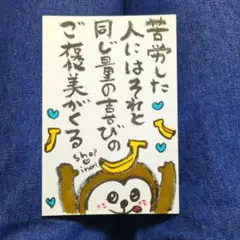 苦労した
人にはそれと
同じ量の喜びの
ご褒美がくる
shop